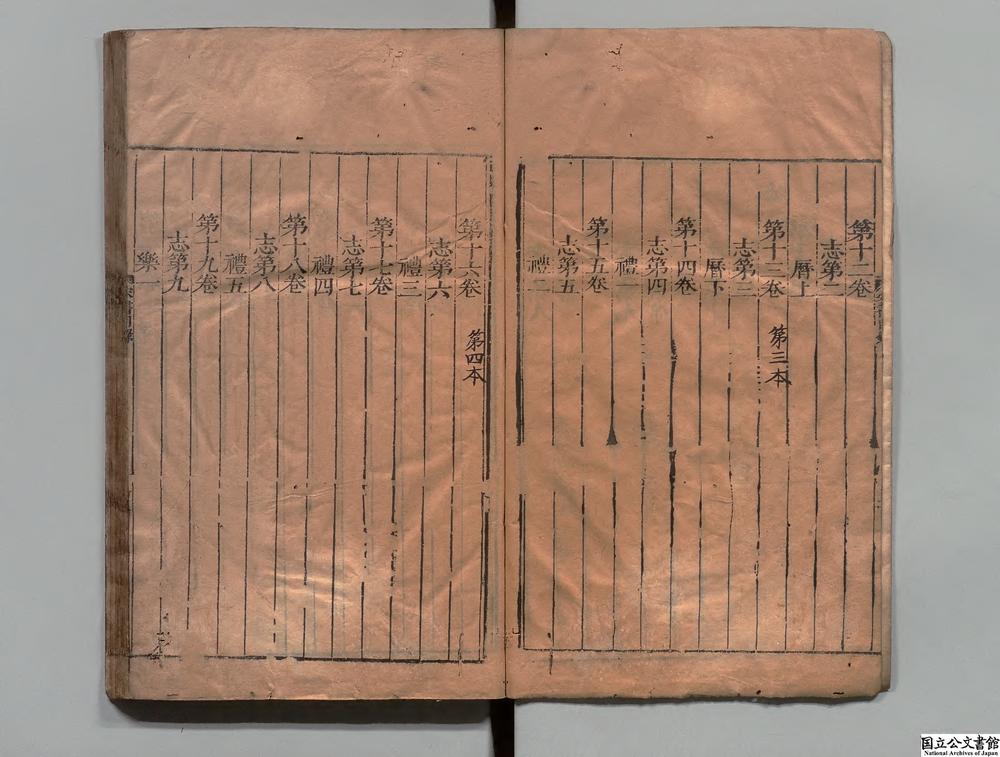 第十二卷
志第二
曆上
第十三卷
第三本
志第三
曆下
第十四卷
志第四
禮一
第十五卷
志第五
禮二
第十六卷
第四本
志第六
禮三
第十七卷
志第七
禮四
第十八卷
志第八
禮五
第十九卷
志第九
樂一
国立公文書館
National Archives of Japan